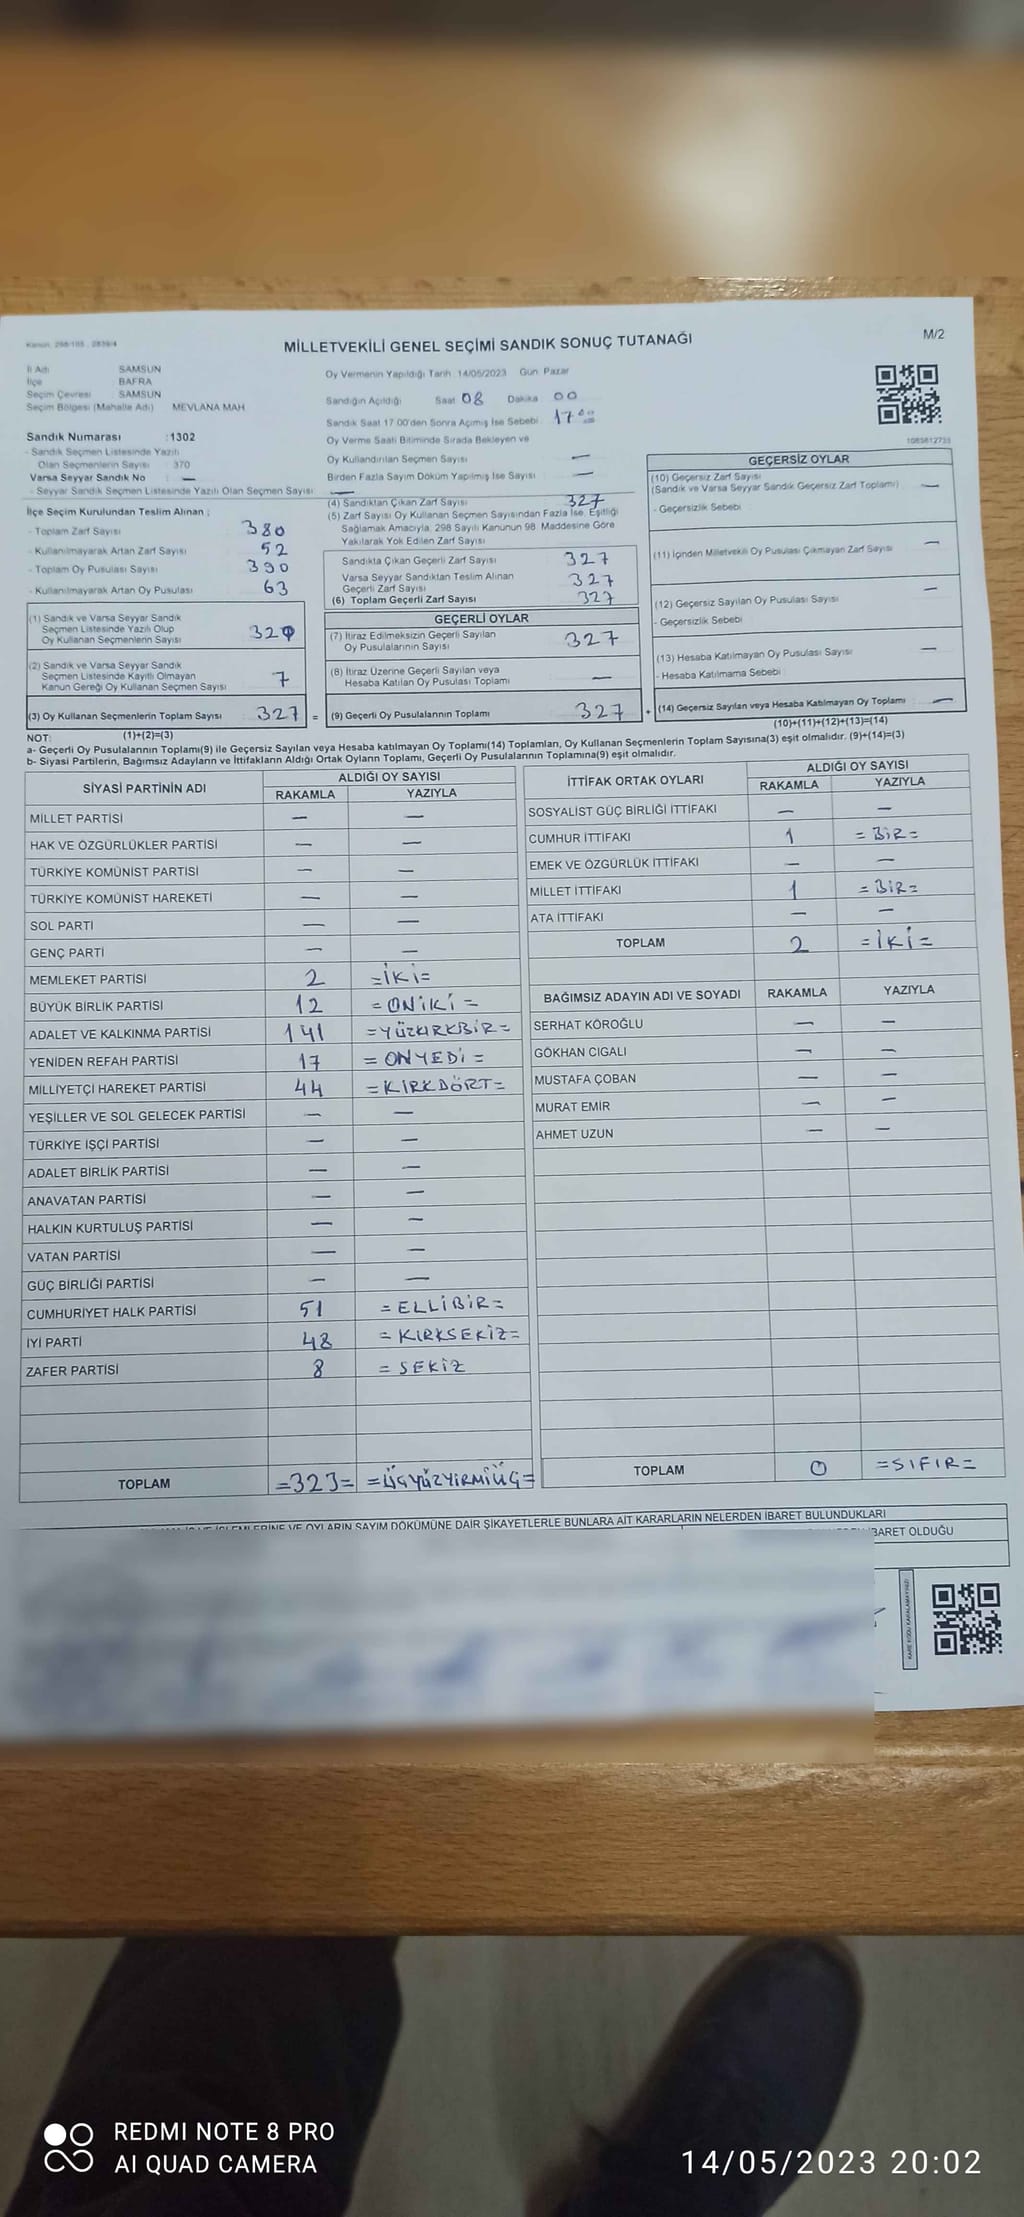 Kanun: 298/105, 2839/4
MİLLETVEKİLİ GENEL SEÇİMİ SANDIK SONUÇ TUTANAĞI
M/2
İl Adı SAMSUN
İlçe BAFRA
Seçim Çevresi SAMSUN
Seçim Bölgesi (Mahalle Adı) MEVLANA MAH.
Sandık Numarası :1302
- Sandık Seçmen Listesinde Yazılı
Olan Seçmenlerin Sayısı : 370
Varsa Seyyar Sandık No : —
- Seyyar Sandık Seçmen Listesinde Yazılı Olan Seçmen Sayısı : —
İlçe Seçim Kurulundan Teslim Alınan :
- Toplam Zarf Sayısı 380
- Kullanılmayarak Artan Zarf Sayısı 52
- Toplam Oy Pusulası Sayısı 390
- Kullanılmayarak Artan Oy Pusulası 63
(1) Sandık ve Varsa Seyyar Sandık
Seçmen Listesinde Yazılı Olup
Oy Kullanan Seçmenlerin Sayısı 320
(2) Sandık ve Varsa Seyyar Sandık
Seçmen Listesinde Kayıtlı Olmayan
Kanun Gereği Oy Kullanan Seçmen Sayısı 7
(3) Oy Kullanan Seçmenlerin Toplam Sayısı 327 =
Oy Vermenin Yapıldığı Tarih: 14/05/2023 Gün: Pazar
Sandığın Açıldığı Saat 08 Dakika 00
Sandık Saat 17:00'den Sonra Açılmış İse Sebebi : 17 00
Oy Verme Saati Bitiminde Sırada Bekleyen ve
Oy Kullandırılan Seçmen Sayısı —
Birden Fazla Sayım Döküm Yapılmış İse Sayısı : —
(4) Sandıktan Çıkan Zarf Sayısı 327
(5) Zarf Sayısı Oy Kullanan Seçmen Sayısından Fazla İse, Eşitliği
Sağlamak Amacıyla, 298 Sayılı Kanunun 98. Maddesine Göre
Yakılarak Yok Edilen Zarf Sayısı
Sandıkta Çıkan Geçerli Zarf Sayısı 327
Varsa Seyyar Sandıktan Teslim Alınan
Geçerli Zarf Sayısı 327
(6) Toplam Geçerli Zarf Sayısı 327
GEÇERLİ OYLAR
(7) İtiraz Edilmeksizin Geçerli Sayılan
Oy Pusulalarının Sayısı 327
(8) İtiraz Üzerine Geçerli Sayılan veya
Hesaba Katılan Oy Pusulası Toplamı —
(9) Geçerli Oy Pusulalarının Toplamı 327 +
1083612733
GEÇERSİZ OYLAR
(10) Geçersiz Zarf Sayısı
(Sandık ve Varsa Seyyar Sandık Geçersiz Zarf Toplamı) —
- Geçersizlik Sebebi :
(11) İçinden Milletvekili Oy Pusulası Çıkmayan Zarf Sayısı —
(12) Geçersiz Sayılan Oy Pusulası Sayısı —
- Geçersizlik Sebebi :
(13) Hesaba Katılmayan Oy Pusulası Sayısı —
- Hesaba Katılmama Sebebi :
(14) Geçersiz Sayılan veya Hesaba Katılmayan Oy Toplamı —
(10)+(11)+(12)+(13)=(14)
NOT: (1)+(2)=(3)
a- Geçerli Oy Pusulalarının Toplamı(9) ile Geçersiz Sayılan veya Hesaba katılmayan Oy Toplamı(14) Toplamları, Oy Kullanan Seçmenlerin Toplam Sayısına(3) eşit olmalıdır. (9)+(14)=(3)
b- Siyasi Partilerin, Bağımsız Adayların ve İttifakların Aldığı Ortak Oyların Toplamı, Geçerli Oy Pusulalarının Toplamına(9) eşit olmalıdır.
SİYASİ PARTİNİN ADI ALDIĞI OY SAYISI
RAKAMLA YAZIYLA
MİLLET PARTİSİ — —
HAK VE ÖZGÜRLÜKLER PARTİSİ — —
TÜRKİYE KOMÜNİST PARTİSİ — —
TÜRKİYE KOMÜNİST HAREKETİ — —
SOL PARTİ — —
GENÇ PARTİ — —
MEMLEKET PARTİSİ 2 =İKİ=
BÜYÜK BİRLİK PARTİSİ 12 =ONİKİ=
ADALET VE KALKINMA PARTİSİ 141 =YÜZKIRKBİR=
YENİDEN REFAH PARTİSİ 17 =ONYEDİ=
MİLLİYETÇİ HAREKET PARTİSİ 44 =KIRKDÖRT=
YEŞİLLER VE SOL GELECEK PARTİSİ — —
TÜRKİYE İŞÇİ PARTİSİ — —
ADALET BİRLİK PARTİSİ — —
ANAVATAN PARTİSİ — —
HALKIN KURTULUŞ PARTİSİ — —
VATAN PARTİSİ — —
GÜÇ BİRLİĞİ PARTİSİ — —
CUMHURİYET HALK PARTİSİ 51 =ELLİBİR=
İYİ PARTİ 48 =KIRKSEKİZ=
ZAFER PARTİSİ 8 =SEKİZ
TOPLAM =323= =ÜÇYÜZYİRMİÜÇ=
İTTİFAK ORTAK OYLARI ALDIĞI OY SAYISI
RAKAMLA YAZIYLA
SOSYALİST GÜÇ BİRLİĞİ İTTİFAKI — —
CUMHUR İTTİFAKI 1 =BİR=
EMEK VE ÖZGÜRLÜK İTTİFAKI — —
MİLLET İTTİFAKI 1 =BİR=
ATA İTTİFAKI — —
TOPLAM 2 =İKİ=
BAĞIMSIZ ADAYIN ADI VE SOYADI RAKAMLA YAZIYLA
SERHAT KÖROĞLU — —
GÖKHAN CIGALI — —
MUSTAFA ÇOBAN — —
MURAT EMİR — —
AHMET UZUN — —
TOPLAM 0 =SIFIR=
OYLARIN SAYIM DÖKÜMÜNE DAİR ŞİKAYETLERLE BUNLARA AİT KARARLARIN NELERDEN İBARET BULUNDUKLARI
İBARET OLDUĞU
KARE KODU KARALAMAYINIZ!
REDMI NOTE 8 PRO
AI QUAD CAMERA
14/05/2023 20:02